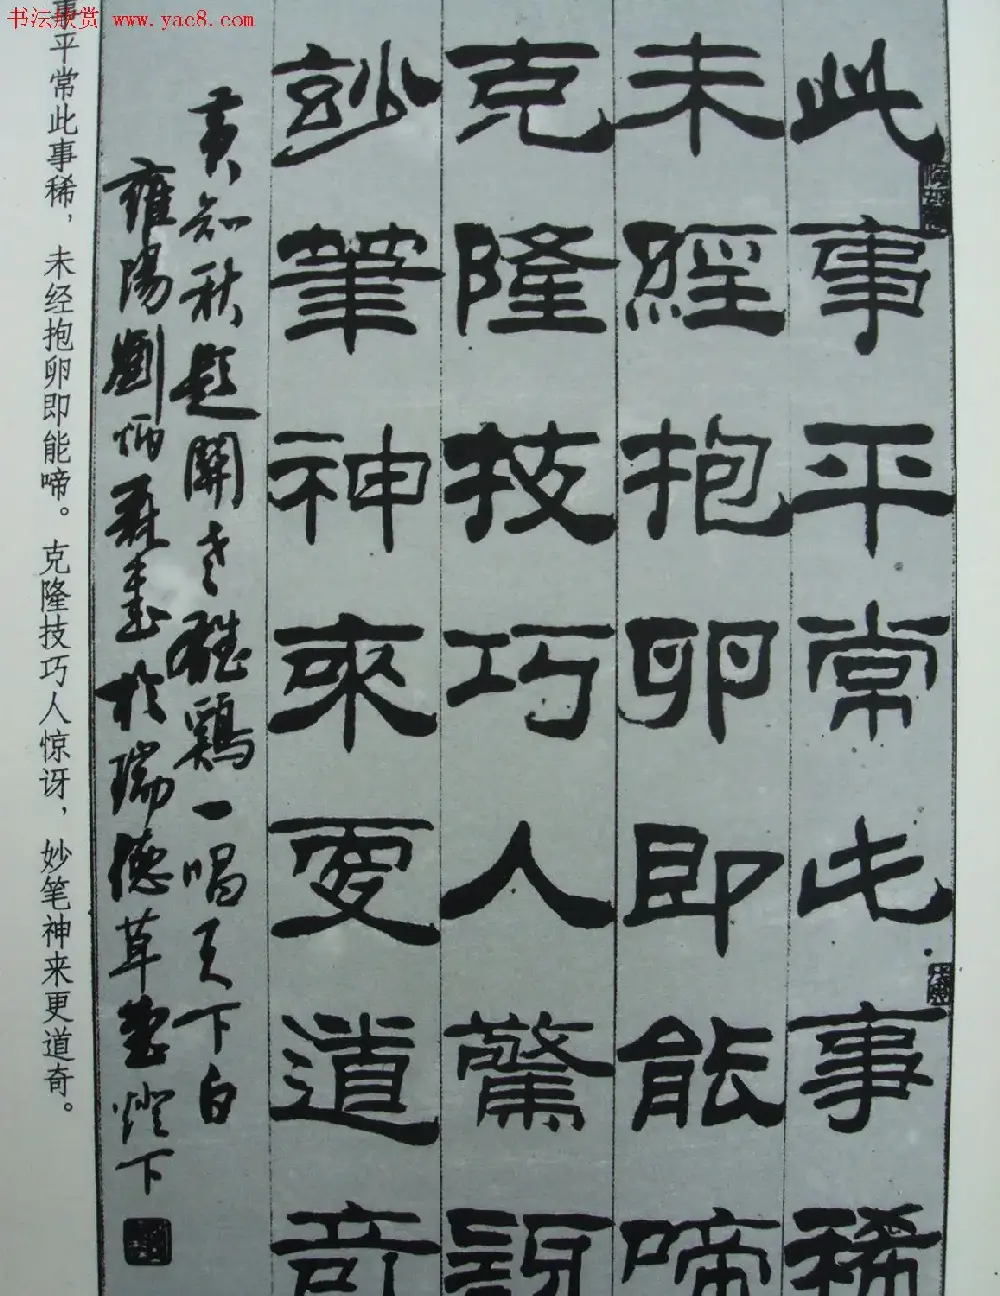 书法欣赏 www.yac8.com
此事平常此事稀
未經抱卵即能啼
克隆技巧人驚訝
玅筆神來更道奇
黄知秋題開老雄鷄一唱天下白
雍陽劉炳森書於瑞德草堂燈下
事平常此事稀，未经抱卵即能啼。克隆技巧人惊讶，妙笔神来更道奇。